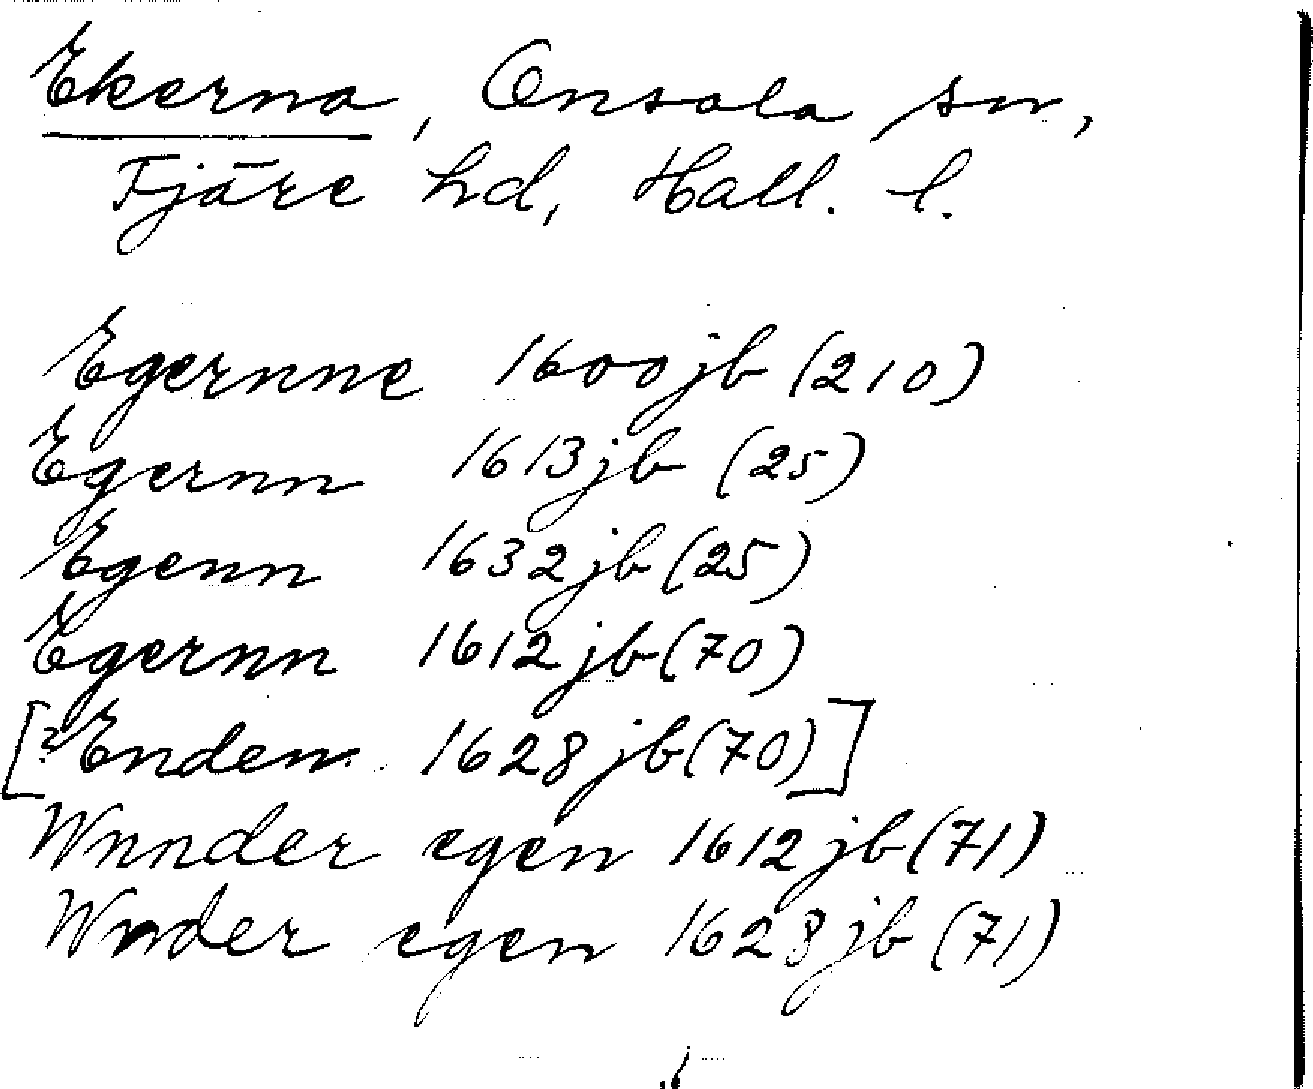 Ekerna, Onsala sn,
Fjäre hd, Hall. l.
Egernne 1600 jb (210)
Egernn 1613 jb (25)
Egenn 1632 jb (25)
Egernn 1612 jb (70)
[? Enden 1628 jb (70)]
Wnnder egen 1612 jb (71)
Wnder egen 1628 jb (71)